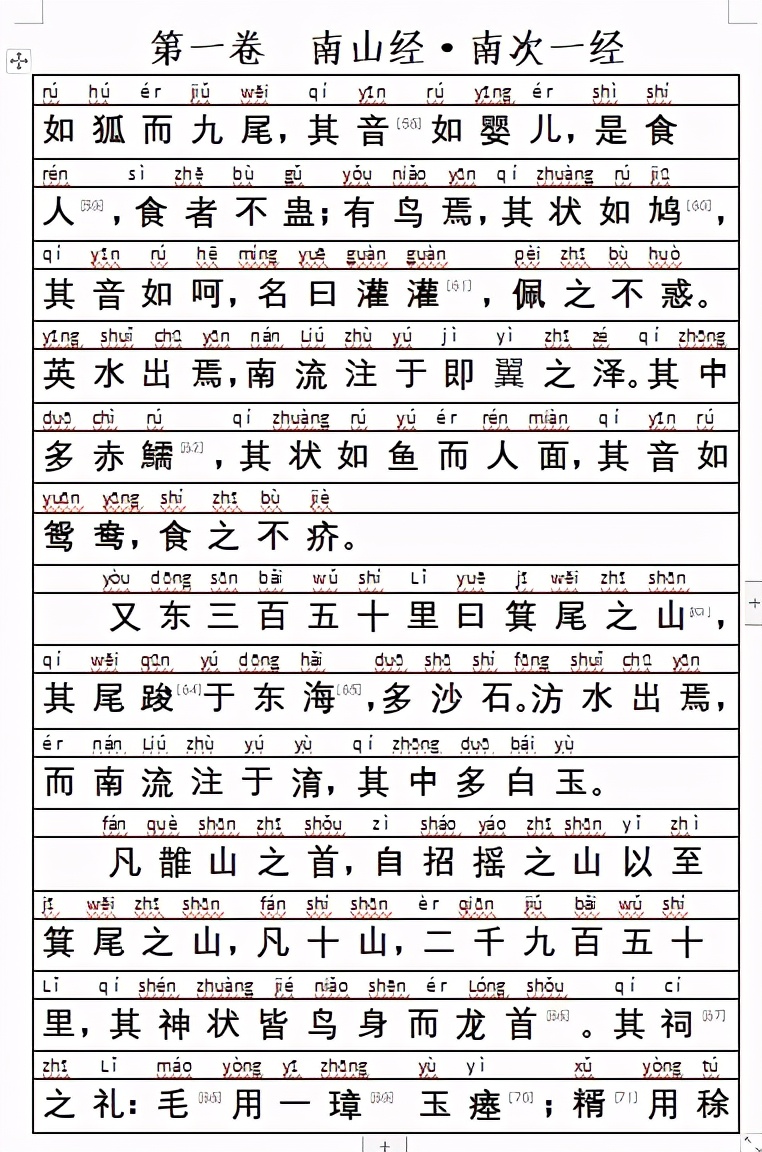 第一卷 南山经·南次一经
rú hú ér jiǔ wěi qí yīn rú yīng ér shì shí
如狐而九尾，其音 如婴儿，是食
rén sì zhě bù gǔ yǒu niǎo yān qí zhuàng rú jiū
人 ，食者不蛊；有鸟焉，其状如鸠[60]，
qí yīn rú hē míng yuē guàn guàn pèi zhī bù huò
其音如呵，名曰灌灌[61]，佩之不惑。
yīng shuǐ chū yān nán Liú zhù yú jì yì zhī zé qí zhōng
英水出焉，南流注于即翼之泽。其中
duō chì rú qí zhuàng rú yú ér rén miàn qí yīn rú
多赤鱬[62]，其状如鱼而人面，其音如
yuān yāng shí zhī bù jiè
鸳鸯，食之不疥。
yòu dōng sān bǎi wǔ shí Lǐ yuē jī wěi zhī shān
又东三百五十里曰箕尾之山 ，
qí wěi qūn yú dōng hǎi duō shā shí fāng shuǐ chū yān
其尾踆[64]于东海[65]，多沙石。汸水出焉，
ér nán Liú zhù yú yù qí zhōng duō bái yù
而南流注于淯，其中多白玉。
fán què shān zhī shǒu zì sháo yáo zhī shān yǐ zhì
凡䧿山之首，自招摇之山以至
jī wěi zhī shān fán shí shān èr qiān jiǔ bǎi wǔ shí
箕尾之山，凡十山，二千九百五十
Lǐ qí shén zhuàng jiē niǎo shēn ér Lóng shǒu qí cí
里，其神状皆鸟身而龙首 。其祠[67]
zhī Lǐ máo yòng yī zhāng yù yì xǔ yòng tú
之礼：毛 用一璋 玉瘗[70]；糈[71]用稌